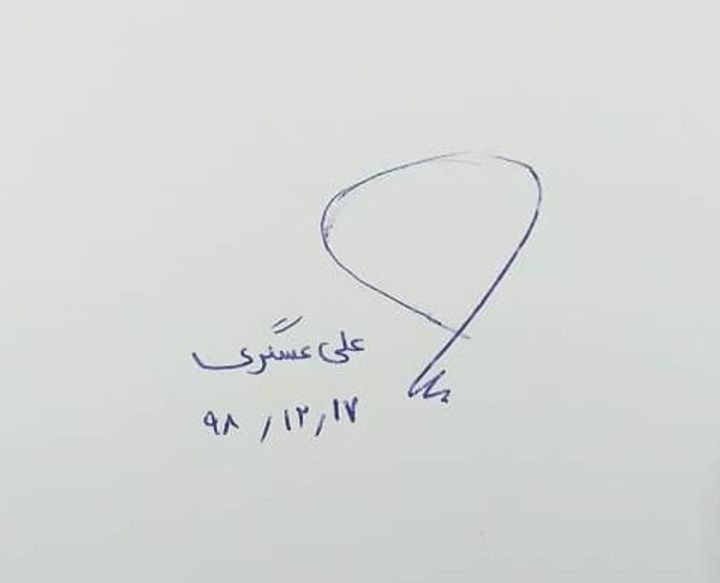 علی عسگری
۹۸/۱۲/۱۷